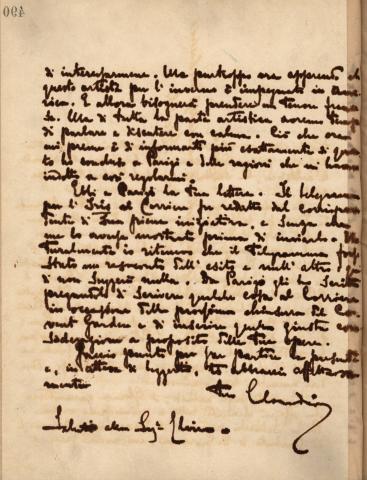 490
di interessarmene. Ma purtroppo era apprendo che
questo artista per l'inverno è impegnato in Ame
rica. E allora bisognerà prendere un tenore france
se. Ma di tutta la parte artistica avremo tempo
di parlare e discutere con calma. Ciò che ora
mi preme è di informarti più esattamente di quan
to ho condotto a Parigi e delle ragioni che mi hanno
indotto a così regolarmi.
Ebbi a Parigi la tua lettera. Il telegramma
per l'Iris al Corriere fu redatto dal corrispon
dente di sua piena iniziativa, e senza che
me lo avesse mostrato prima di inviarlo. Na
turalmente io ritenevo che il telegramma fosse
stato un resoconto dell'esito e null'altro
di non seppi nulla. Da Parigi gli ho scritto
pregandolo di scrivere qualche cosa al Corriere
in occasione della prossima chiusura del Co
vent Garden e di inserire qualche giusta con
siderazione a proposito delle tue opere.
Faccio punto per far partire la presente
e, in attesa di leggerti, ti abbraccio affettuosa
mente
tuo Claudio
Saluti alla Sig.a Elvira.